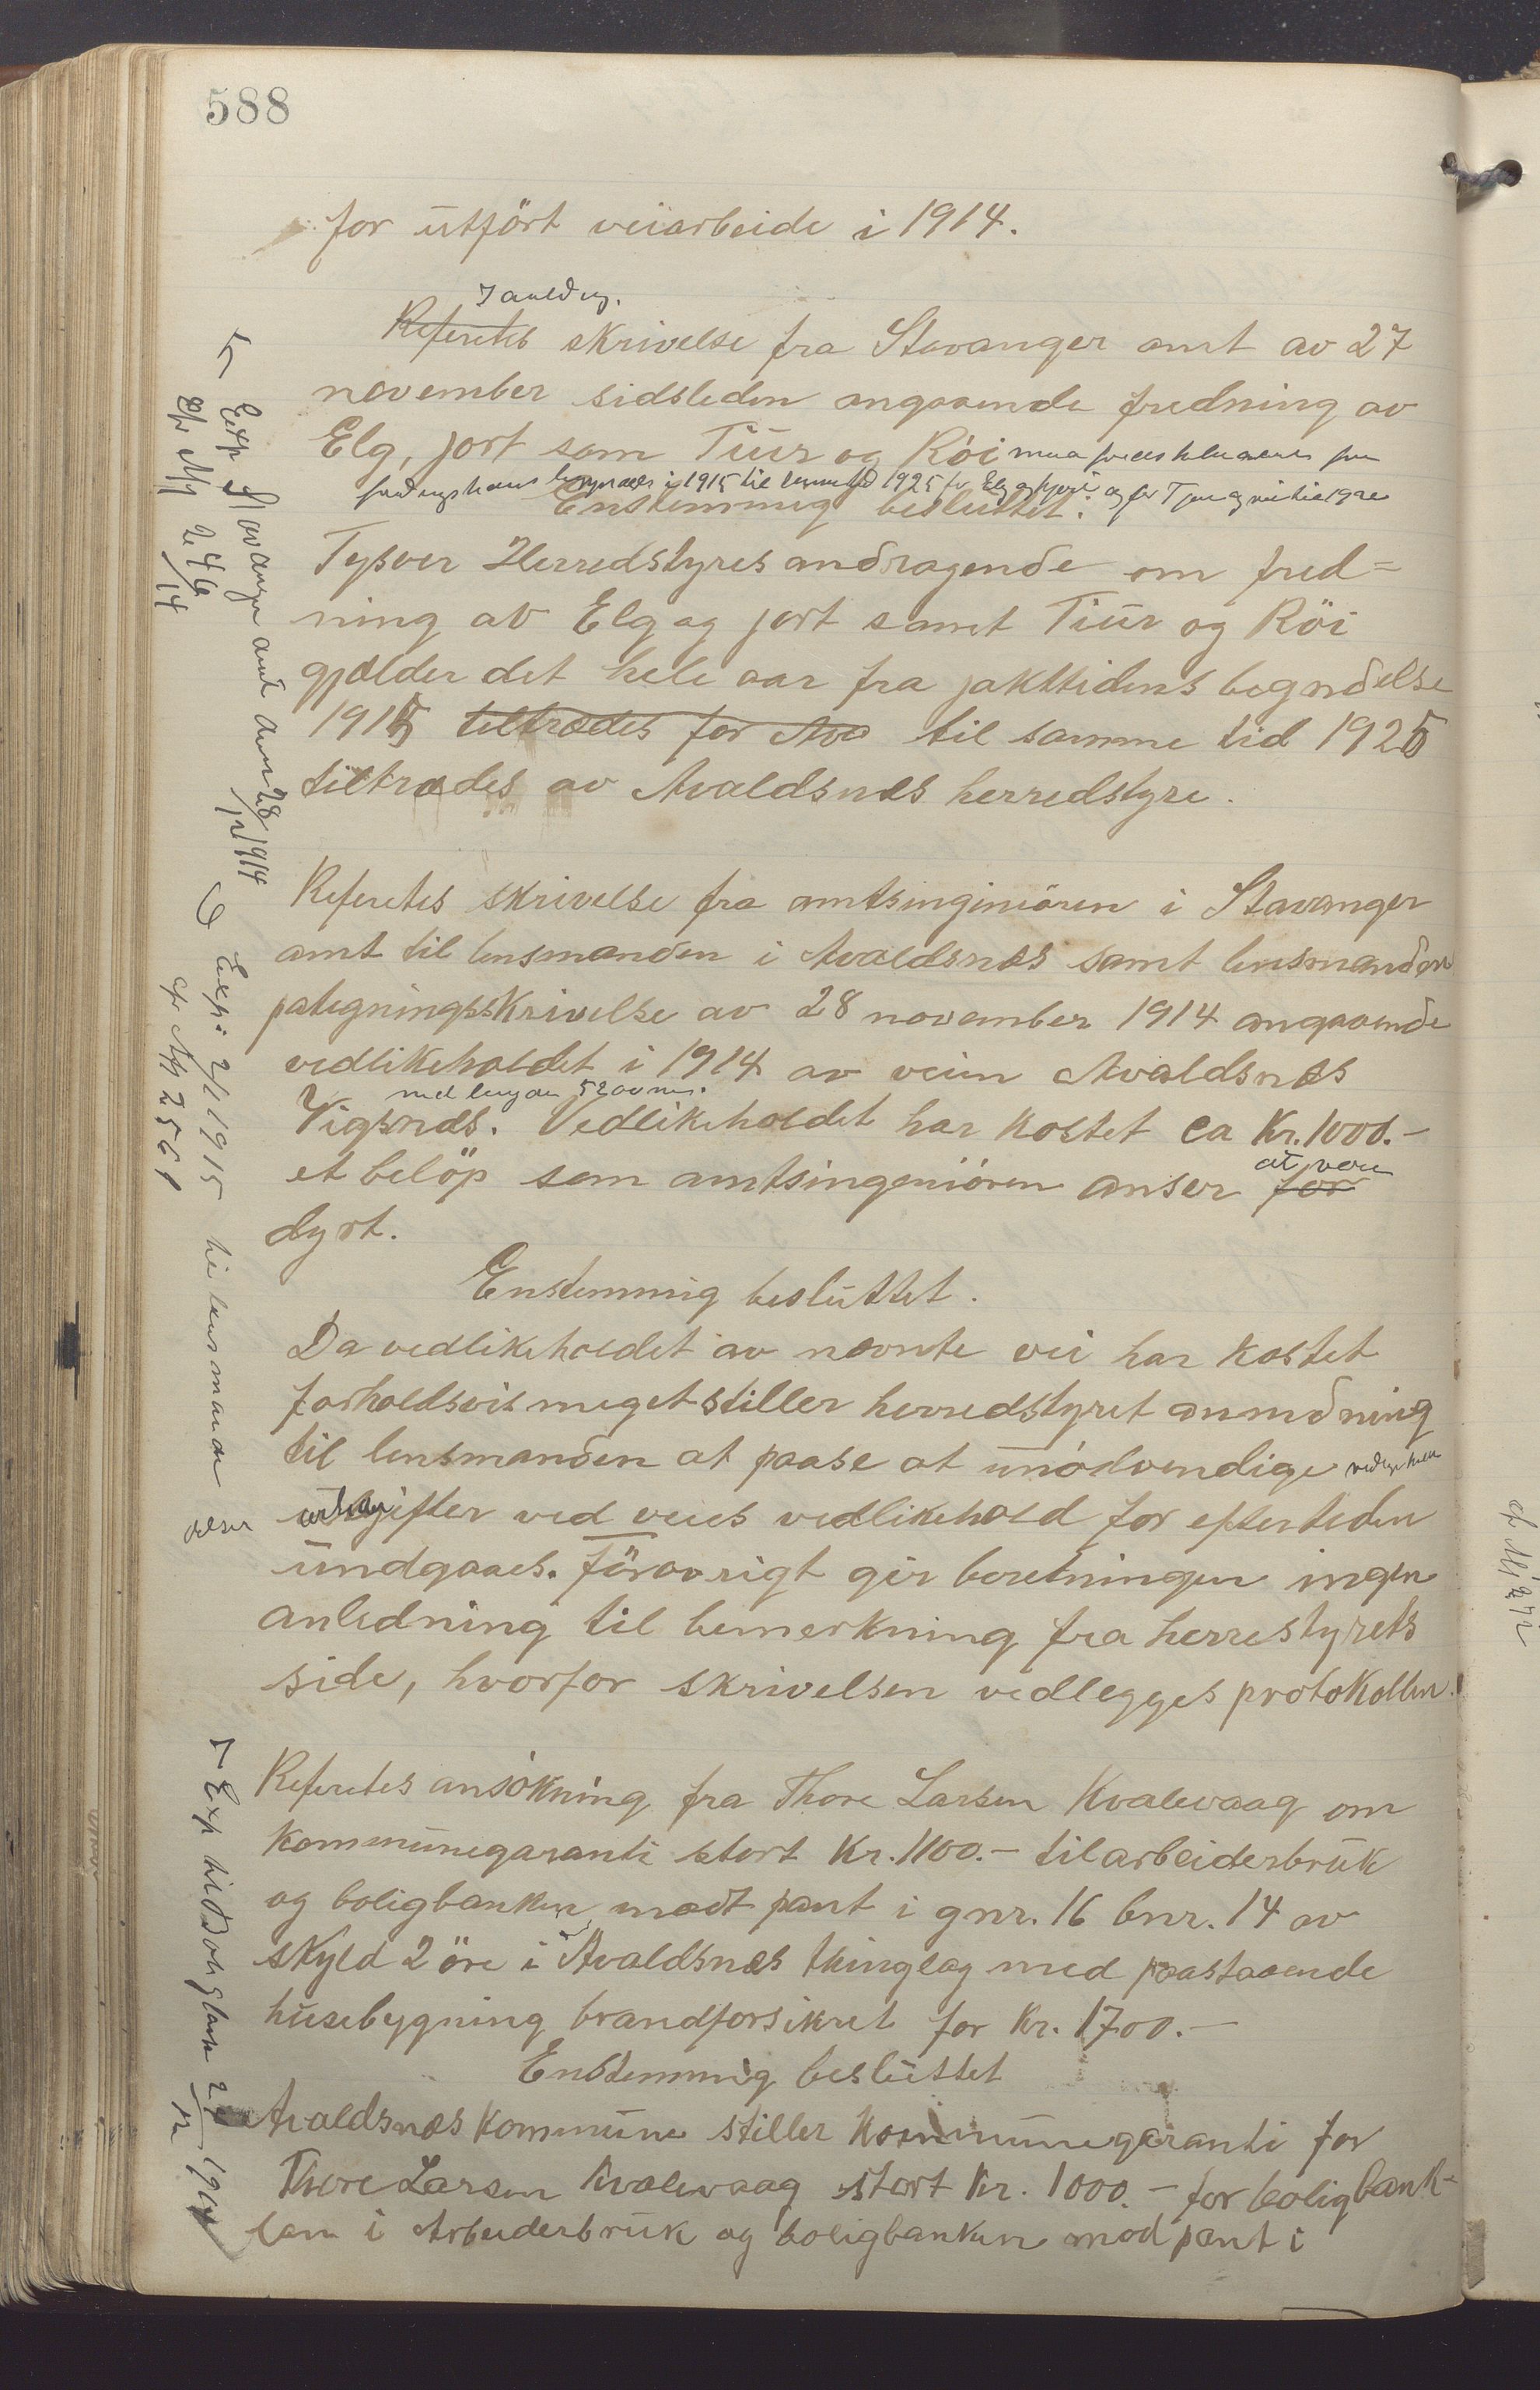 588
for utført veiarbeide i 1914.
I anledng.
Referertes skrivelse fra Stavanger amt av 27
november sidstleden angaaende fredning av
Elg, jort som Tiur og Röi
i 1915 til 1925 for Elg og hjort og for Tiur og
Enstemmig besluttet:
Tysvær Herredstyres andragende om fred-
ning av Elg og jort samt Tiur og Röi
gjælder det hele aar fra jakttidens begndelse
1915 tiltrædes for Ava til samme tid 1925
tiltrædes av Avaldsnæs herredstyre.
Refertes skrivelse fra amtsinginiören i Stavanger
amt til lensmanden i Avaldsnæs samt lensmanden
pategningsskrivelse av 28 november 1914 angaaende
vedlikeholdet i 1914 av veien Avaldsnæs
med længde 5200 m.
Vigsnæs. Vedlikeholdet har kostet ca Kr. 1000.-
et belöp som amtsingeniören anser for
at være
dyrt.
Enstemmig besluttet.
Da vedlikeholdet av nævnte vei har kostet
forholdsvis meget stiller herredstyret anmdning
til lensmanden at paase at unödvendige
utgifter ved veies vedlikehold for eftertiden
undgaaes. Förovrigt gir beretningen ingen
anledning til bemerkning fra herrestyrets
side, hvorfor skrivelsen vedlegges protokollen.
Refertes ansökning fra Thore Larsen Kvalevaag om
Kommunegaranti stort Kr. 1100.- til arbeiderbruk
og boligbanken modt pant i gnr. 16 bnr. 14 av
skyld 2 öre i Avaldsnæs thinglag med paastaaende
husebygning brandforsikret for Kr. 1700.-
Enstemmig besluttet
Avaldsnæs kommune stiller Kommunegaranti for
Thore Larsen Kvalevaag stort Kr. 1000.- for boligbank-
laan i Arbeiderbruk og boligbanken mod pant i
Exp Stavanger amt den 28/12 1914
cfr Nr 246/14
Exp. 2/1 1915 til lensmanden
cfr Nr 256/
Exp til Boligbank 28/12 1914